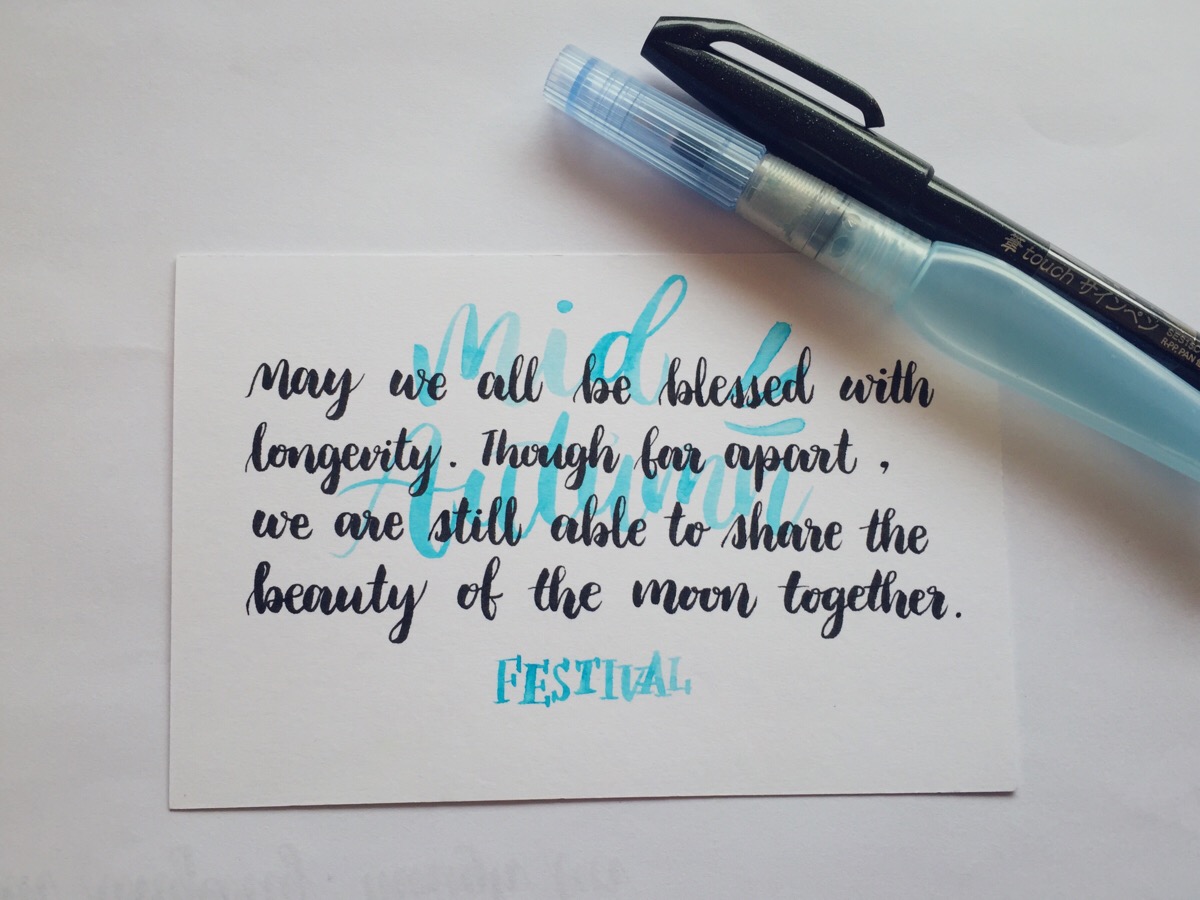 mid
may we all be blessed with
longevity. Though far apart,
Autumn
we are still able to share the
beauty of the moon together.
FESTIVAL
touch サインペン